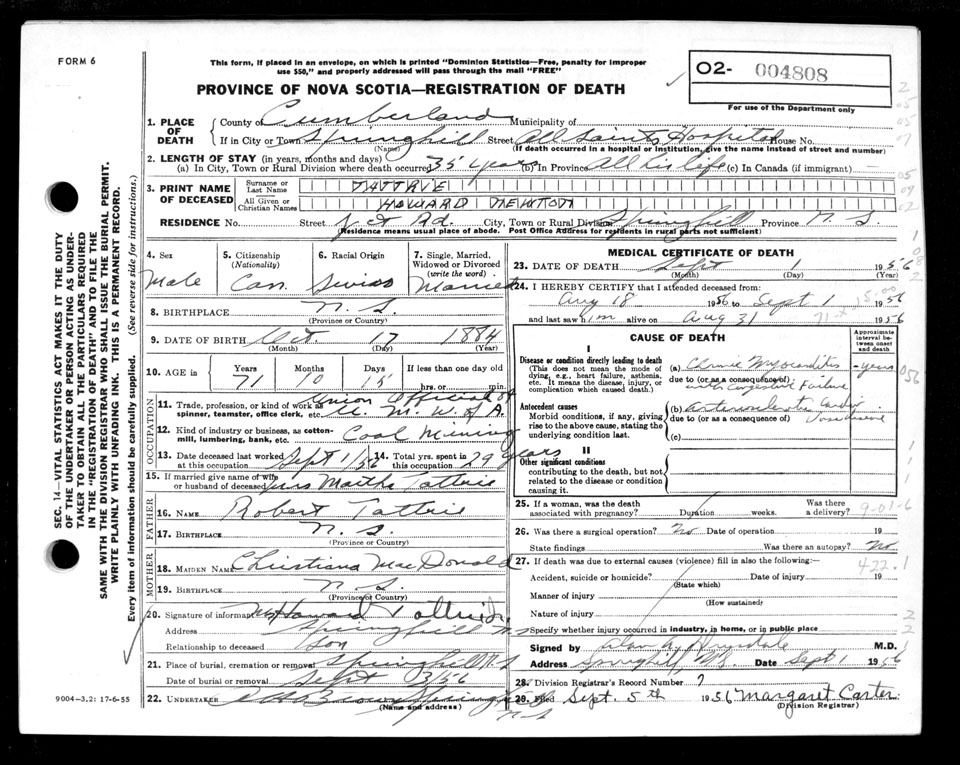 FORM 6
This form, if placed in an envelope, on which is printed "Dominion Statistics—Free, penalty for improper
use $50," and properly addressed will pass through the mail "FREE"
O2- 004808
For use of the Department only
PROVINCE OF NOVA SCOTIA—REGISTRATION OF DEATH
1. PLACE OF DEATH
County of Cumberland Municipality of
If in City or Town Springhill Street All Saints Hospital House No.
(Name) (If death occurred in a hospital or institution, give the name instead of street and number)
2. LENGTH OF STAY (in years, months and days)
(a) In City, Town or Rural Division where death occurred 35 years (b) In Province All his life (c) In Canada (if immigrant)
3. PRINT NAME OF DECEASED
Surname or Last Name TATTRIE
All Given or Christian Names HOWARD NEWTON
RESIDENCE No. Street Rd. City, Town or Rural Division Springhill Province N. S.
(Residence means usual place of abode. Post Office Address for residents in rural parts not sufficient)
4. Sex Male
5. Citizenship (Nationality) Can.
6. Racial Origin Swiss
7. Single, Married, Widowed or Divorced (write the word) Married
8. BIRTHPLACE N. S.
(Province or Country)
9. DATE OF BIRTH Oct. 17 1884
(Month) (Day) (Year)
10. AGE in Years 71 Months 10 Days 15 If less than one day old hrs. or min.
OCCUPATION
11. Trade, profession, or kind of work as spinner, teamster, office clerk, etc. Union Official of U. M. W. of A.
12. Kind of industry or business, as cotton-mill, lumbering, bank, etc. Coal Mining
13. Date deceased last worked at this occupation Sept 1/56 14. Total yrs. spent in this occupation 29 years
15. If married give name of wife or husband of deceased Mrs Martha Tattrie
FATHER
16. NAME Robert Tattrie
17. BIRTHPLACE N. S.
(Province or Country)
MOTHER
18. MAIDEN NAME Christiana MacDonald
19. BIRTHPLACE N. S.
(Province or Country)
20. Signature of informant Howard Tattrie Jr.
Address Springhill N S
Relationship to deceased Son
21. Place of burial, cremation or removal Springhill N. S
Date of burial or removal Sept 3/56
22. UNDERTAKER Brown Springhill
(Name and address)
N. S
MEDICAL CERTIFICATE OF DEATH
23. DATE OF DEATH Sept 1 1956
(Month) (Day) (Year)
24. I HEREBY CERTIFY that I attended deceased from:
Aug 18 1956 to Sept 1 1956
and last saw him alive on Aug 31 1956
CAUSE OF DEATH
Approximate interval between onset and death
I
Disease or condition directly leading to death
(This does not mean the mode of dying, e.g., heart failure, asthenia, etc. It means the disease, injury, or complication which caused death.)
(a) Chronic Myocarditis years
due to (or as a consequence of) with Congestive Failure
Antecedent causes
Morbid conditions, if any, giving rise to the above cause, stating the underlying condition last.
(b) Arteriosclerotic Cardio
due to (or as a consequence of)
(c)
II
Other significant conditions
contributing to the death, but not related to the disease or condition causing it.
25. If a woman, was the death associated with pregnancy? Duration weeks. Was there a delivery?
26. Was there a surgical operation? No Date of operation 19
State findings Was there an autopsy? No
27. If death was due to external causes (violence) fill in also the following:
422.1
Accident, suicide or homicide? Date of injury 19
(State which)
Manner of injury
(How sustained)
Nature of injury
Specify whether injury occurred in industry, in home, or in public place
Signed by Drysdale M.D.
Address Springhill NS. Date Sept 1 1956
28. Division Registrar's Record Number 7
29. Filed Sept. 5th 1956 Margaret Carter.
(Division Registrar)
9004-3.2: 17-6-55
SEC. 14—VITAL STATISTICS ACT MAKES IT THE DUTY
OF THE UNDERTAKER OR PERSON ACTING AS UNDER-
TAKER TO OBTAIN ALL THE PARTICULARS REQUIRED
IN THE "REGISTRATION OF DEATH" AND TO FILE THE
SAME WITH THE DIVISION REGISTRAR WHO SHALL ISSUE THE BURIAL PERMIT.
WRITE PLAINLY WITH UNFADING INK. THIS IS A PERMANENT RECORD.
Every item of information should be carefully supplied. (See reverse side for instructions.)